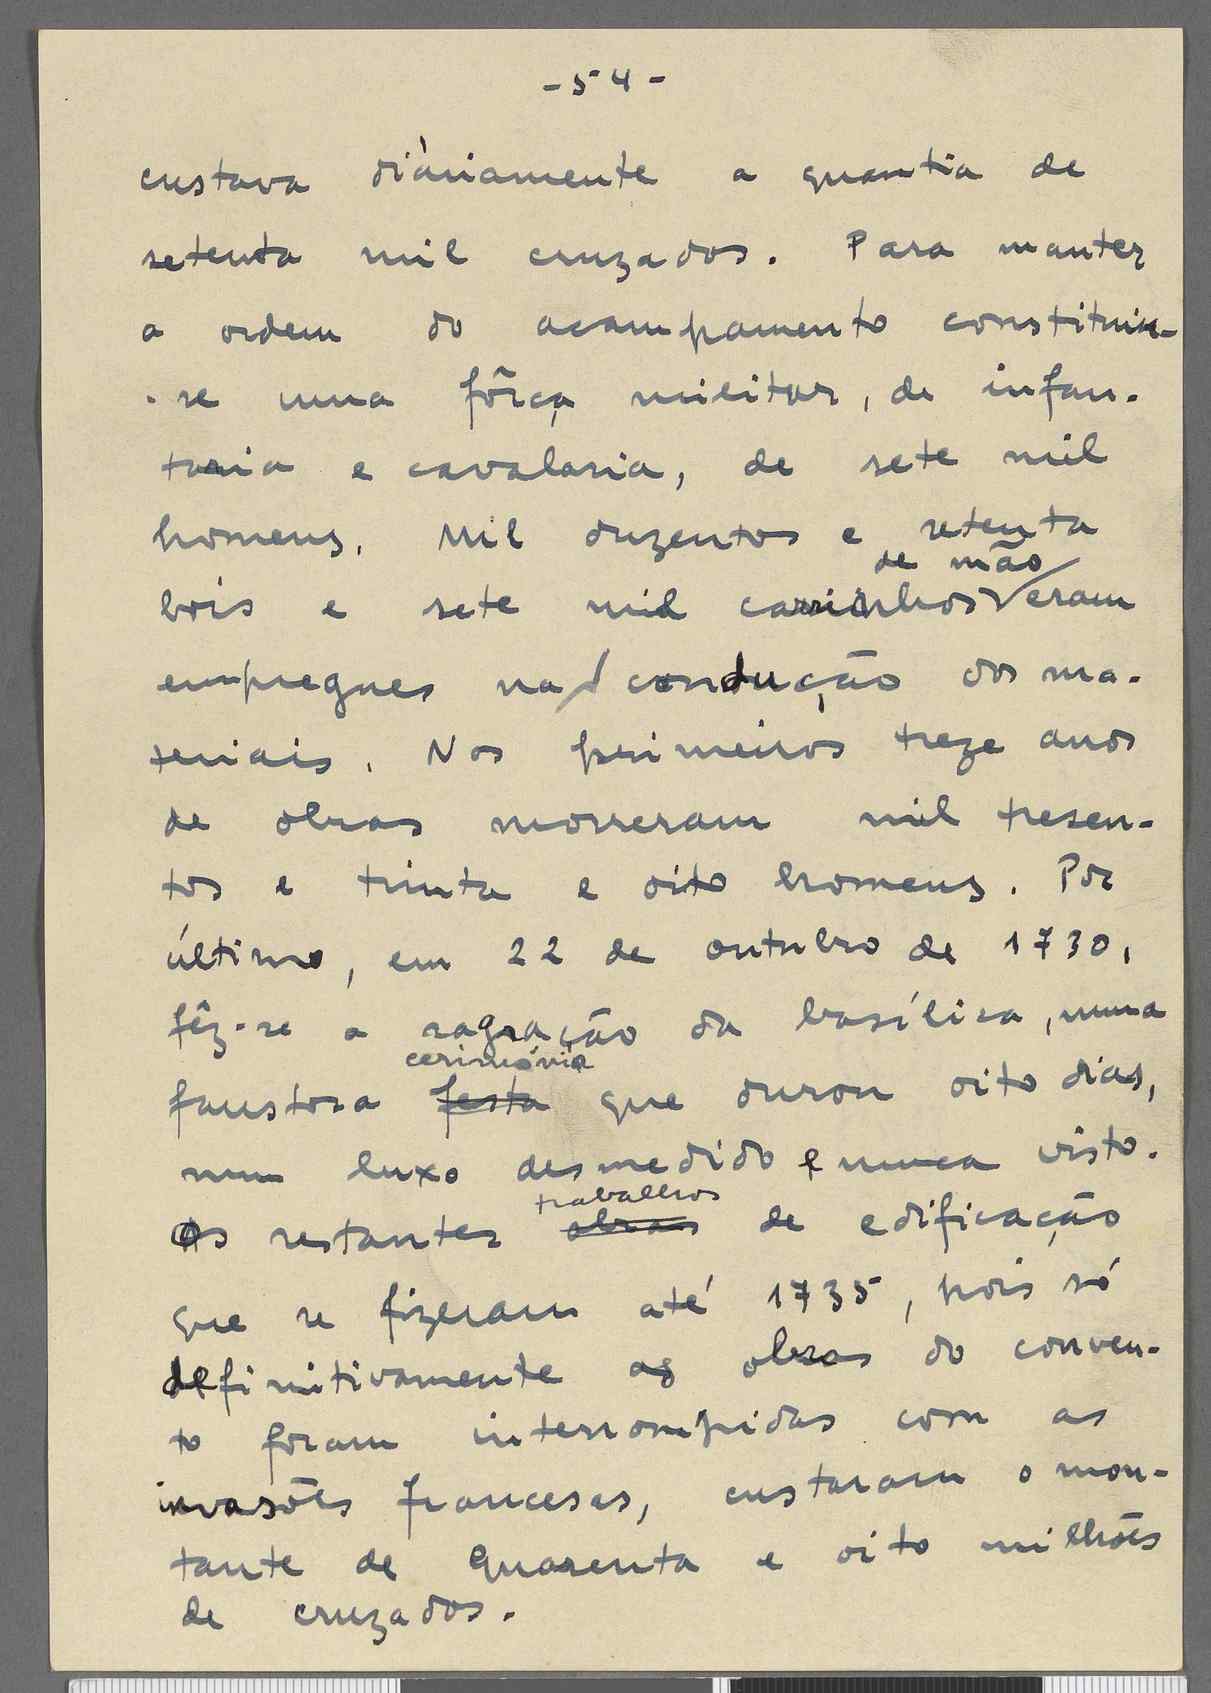 - 54 -
custava diàriamente a quantia de
setenta mil cruzados. Para manter
a ordem do acampamento constituiu-
-se uma fôrça militar, de infan-
taria e cavalaria, de sete mil
homens. Mil duzentos e setenta
de mão
bois e sete mil carrinhos eram
empregues na condução dos ma-
teriais. Nos primeiros treze anos
de obras morreram mil tresen-
tos e trinta e oito homens. Por
último, em 22 de outubro de 1730,
fêz-se a sagração da basílica, numa
cerimónia
faustosa festa que durou oito dias,
num luxo desmedido e nunca visto.
trabalhos
Os restantes obras de edificação
que se fizeram até 1735, pois só
definitivamente as obras do conven-
to foram interrompidas com as
invasões francesas, custaram o mon-
tante de quarenta e oito milhões
de cruzados.